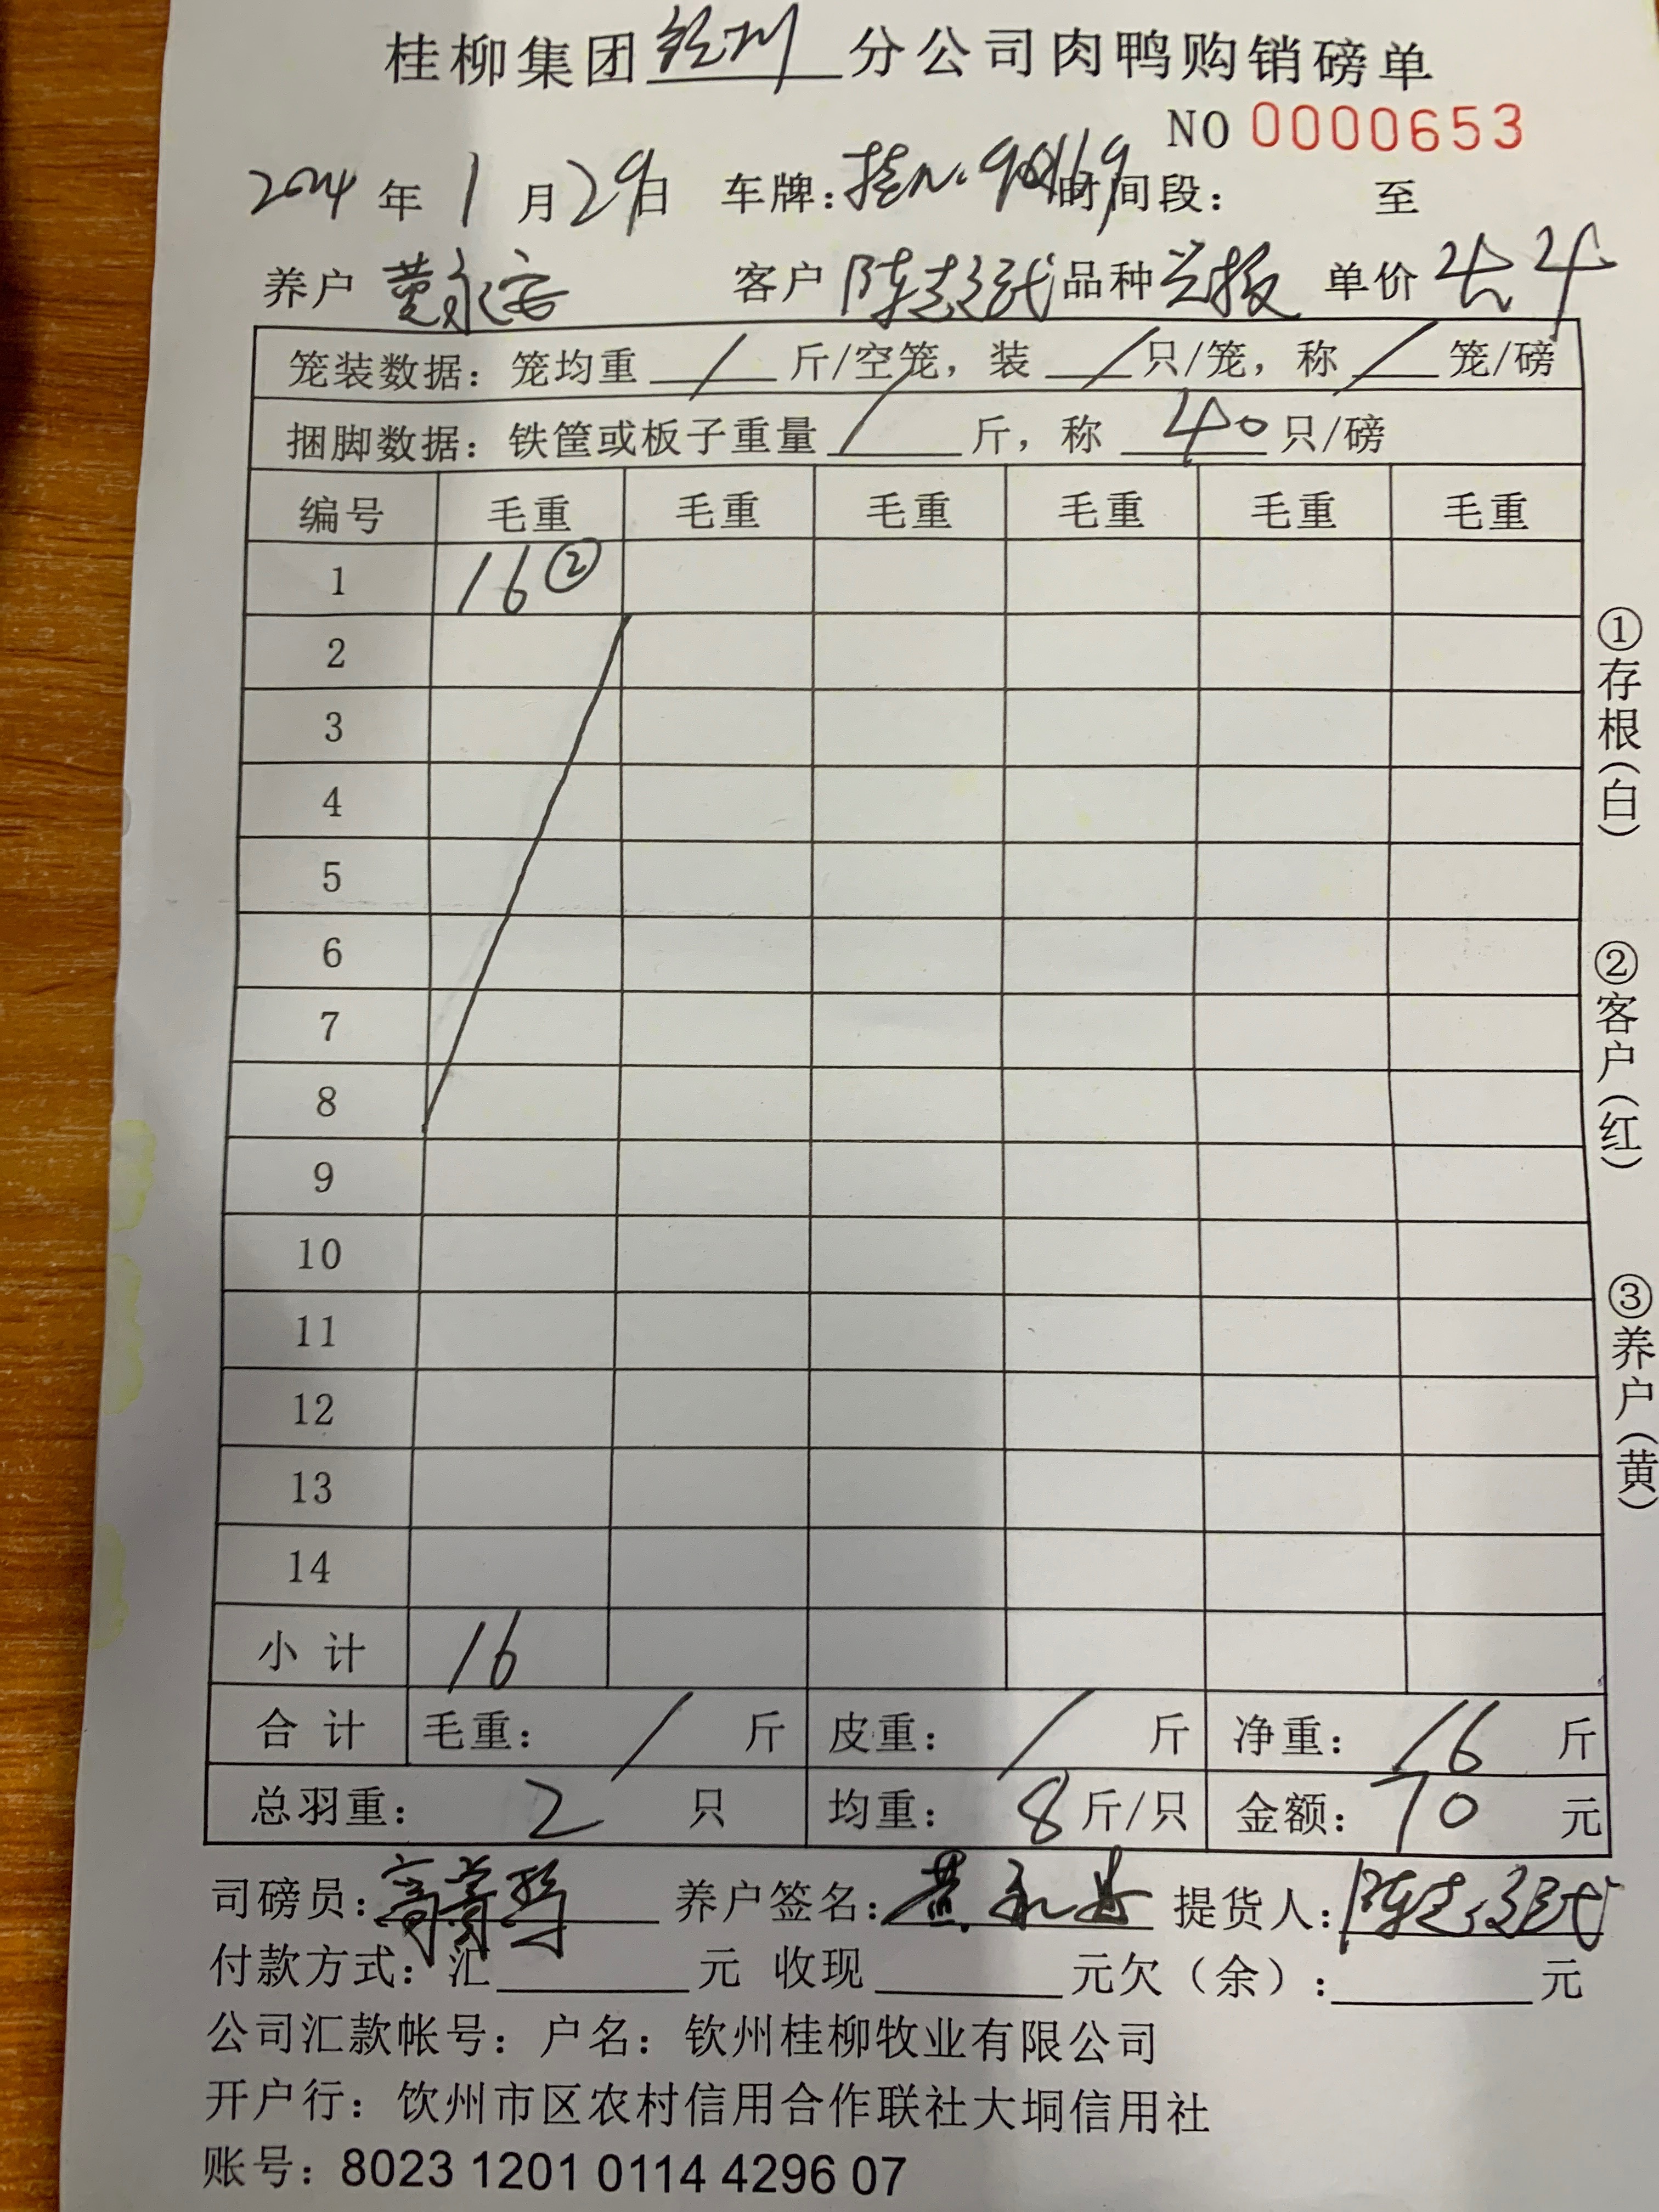 桂柳集团钦州分公司肉鸭购销磅单
NO 0000653
2024 年 1 月 29 日 车牌：桂N· 时间段： 至
养户 黄永安 客户 陈志 品种 单价
笼装数据：笼均重 / 斤/空笼，装 / 只/笼，称 / 笼/磅
捆脚数据：铁筐或板子重量 / 斤，称 40 只/磅
编号 毛重 毛重 毛重 毛重 毛重 毛重
1 16②
2
3
4
5
6
7
8
9
10
11
12
13
14
小 计 16
合 计 毛重： / 斤 皮重： / 斤 净重： 16 斤
总羽重： 2 只 均重： 8 斤/只 金额： 70 元
司磅员： 养户签名：黄永安 提货人：陈志
付款方式：汇 元 收现 元欠（余）： 元
公司汇款帐号：户名：钦州桂柳牧业有限公司
开户行：钦州市区农村信用合作联社大垌信用社
账号：8023 1201 0114 4296 07
①存根（白）
②客户（红）
③养户（黄）